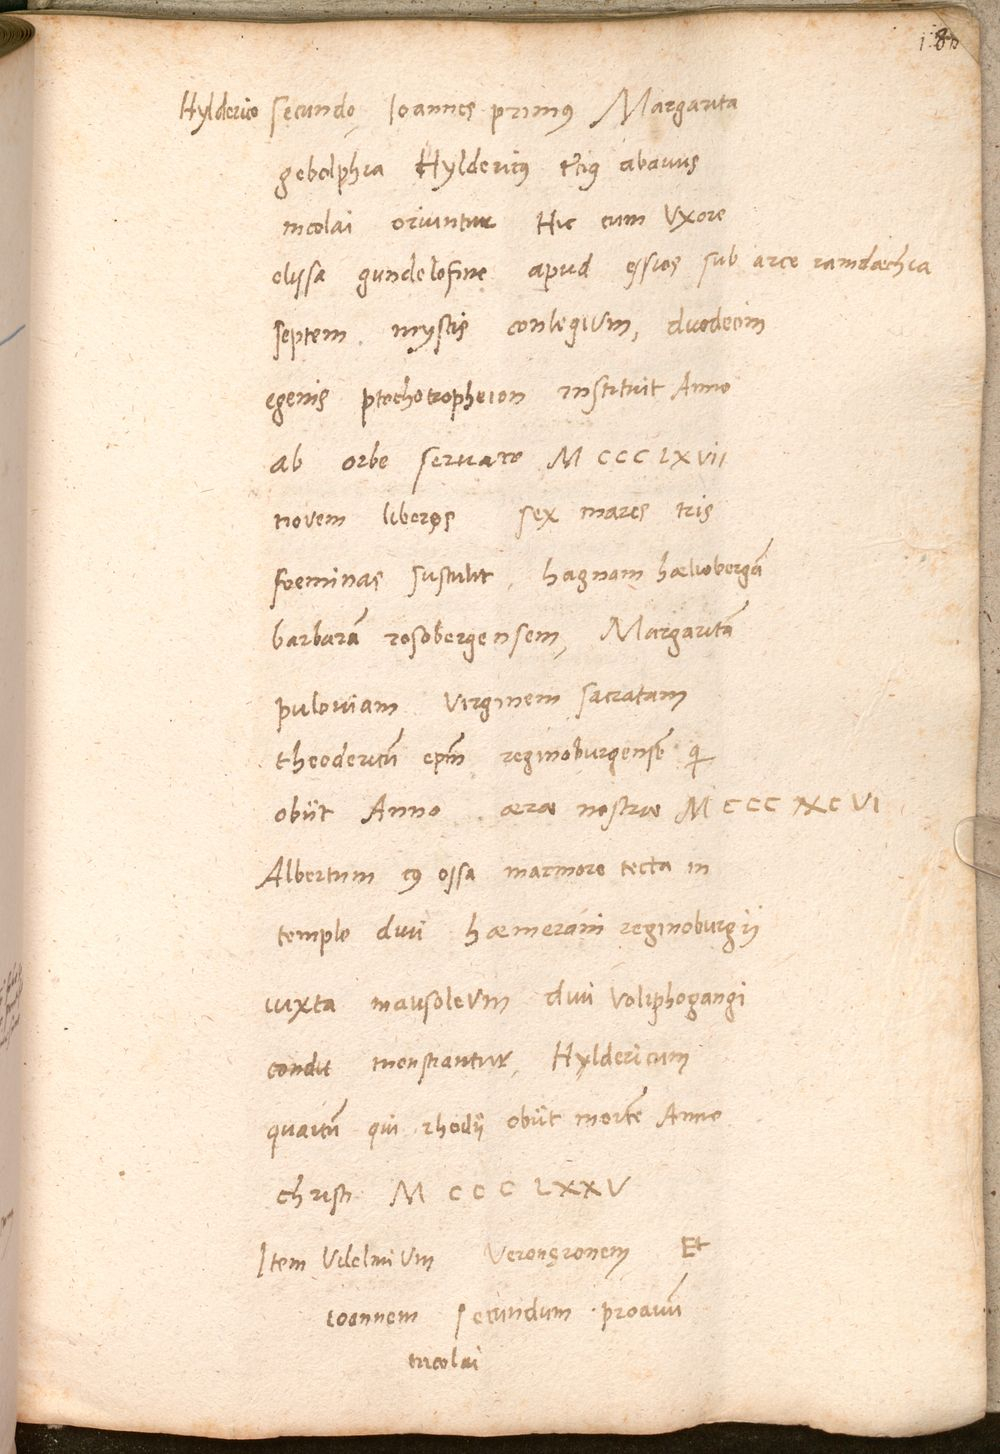 180
Hylderico secundo, Ioannes primus Margarita
gebolphra Hyldericus t̃tius abavus
nicolai oriuntur Hic cum Vxore
elissa gundelofine apud essios sub arce ramdæchia
septem mystis conlegiVm, duodecim
egenis ptochotropheion instituit Anno
ab orbe servato M CCC LXVII
novem liberos sex mares tris
foeminas sustulit, hagnam hæliobergā
barbarā rosobergensem, Margaritā
puloviam Virginem sacratam
theodericū epm̄ reginoburgensē qi
obiit Anno æræ nostræ M CCC XCVI
Albertum cuius ossa marmore tecta in
templo divi hæmerani reginoburgij
iuxta mausoleVm divi Voliphogangi
condit monstrantur, Hyldericum
quartū qui rhodij obiit mortē Anno
christi M CCC LXXV
Item VilelmiVm Et
ioannem secundum proavū
nicolai